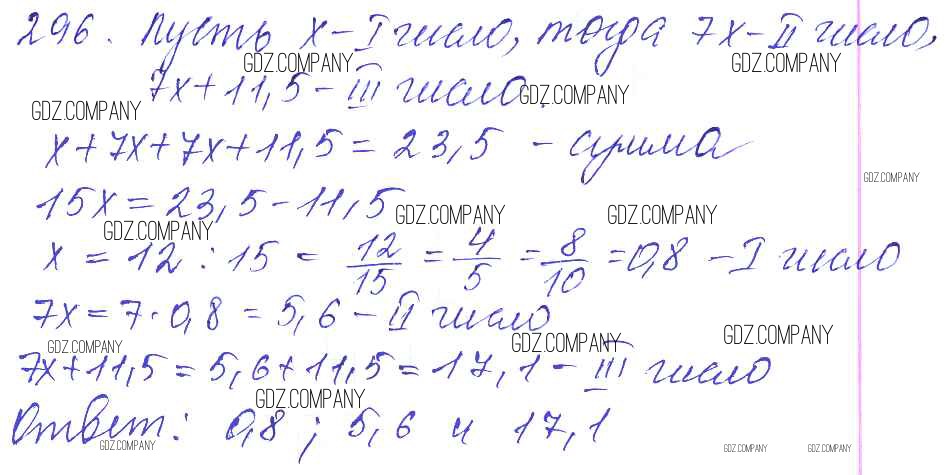 296. Пусть x - I число, тогда 7x - II число,
GDZ.COMPANY GDZ.COMPANY
7x + 11,5 - III число.
GDZ.COMPANY GDZ.COMPANY
x + 7x + 7x + 11,5 = 23,5 - сумма
GDZ.COMPANY
15x = 23,5 - 11,5
GDZ.COMPANY GDZ.COMPANY GDZ.COMPANY
x = 12 : 15 = 12/15 = 4/5 = 8/10 = 0,8 - I число
7x = 7 · 0,8 = 5,6 - II число
GDZ.COMPANY GDZ.COMPANY GDZ.COMPANY
7x + 11,5 = 5,6 + 11,5 = 17,1 - III число
GDZ.COMPANY
Ответ: 0,8 ; 5,6 и 17,1
GDZ.COMPANY GDZ.COMPANY GDZ.COMPANY